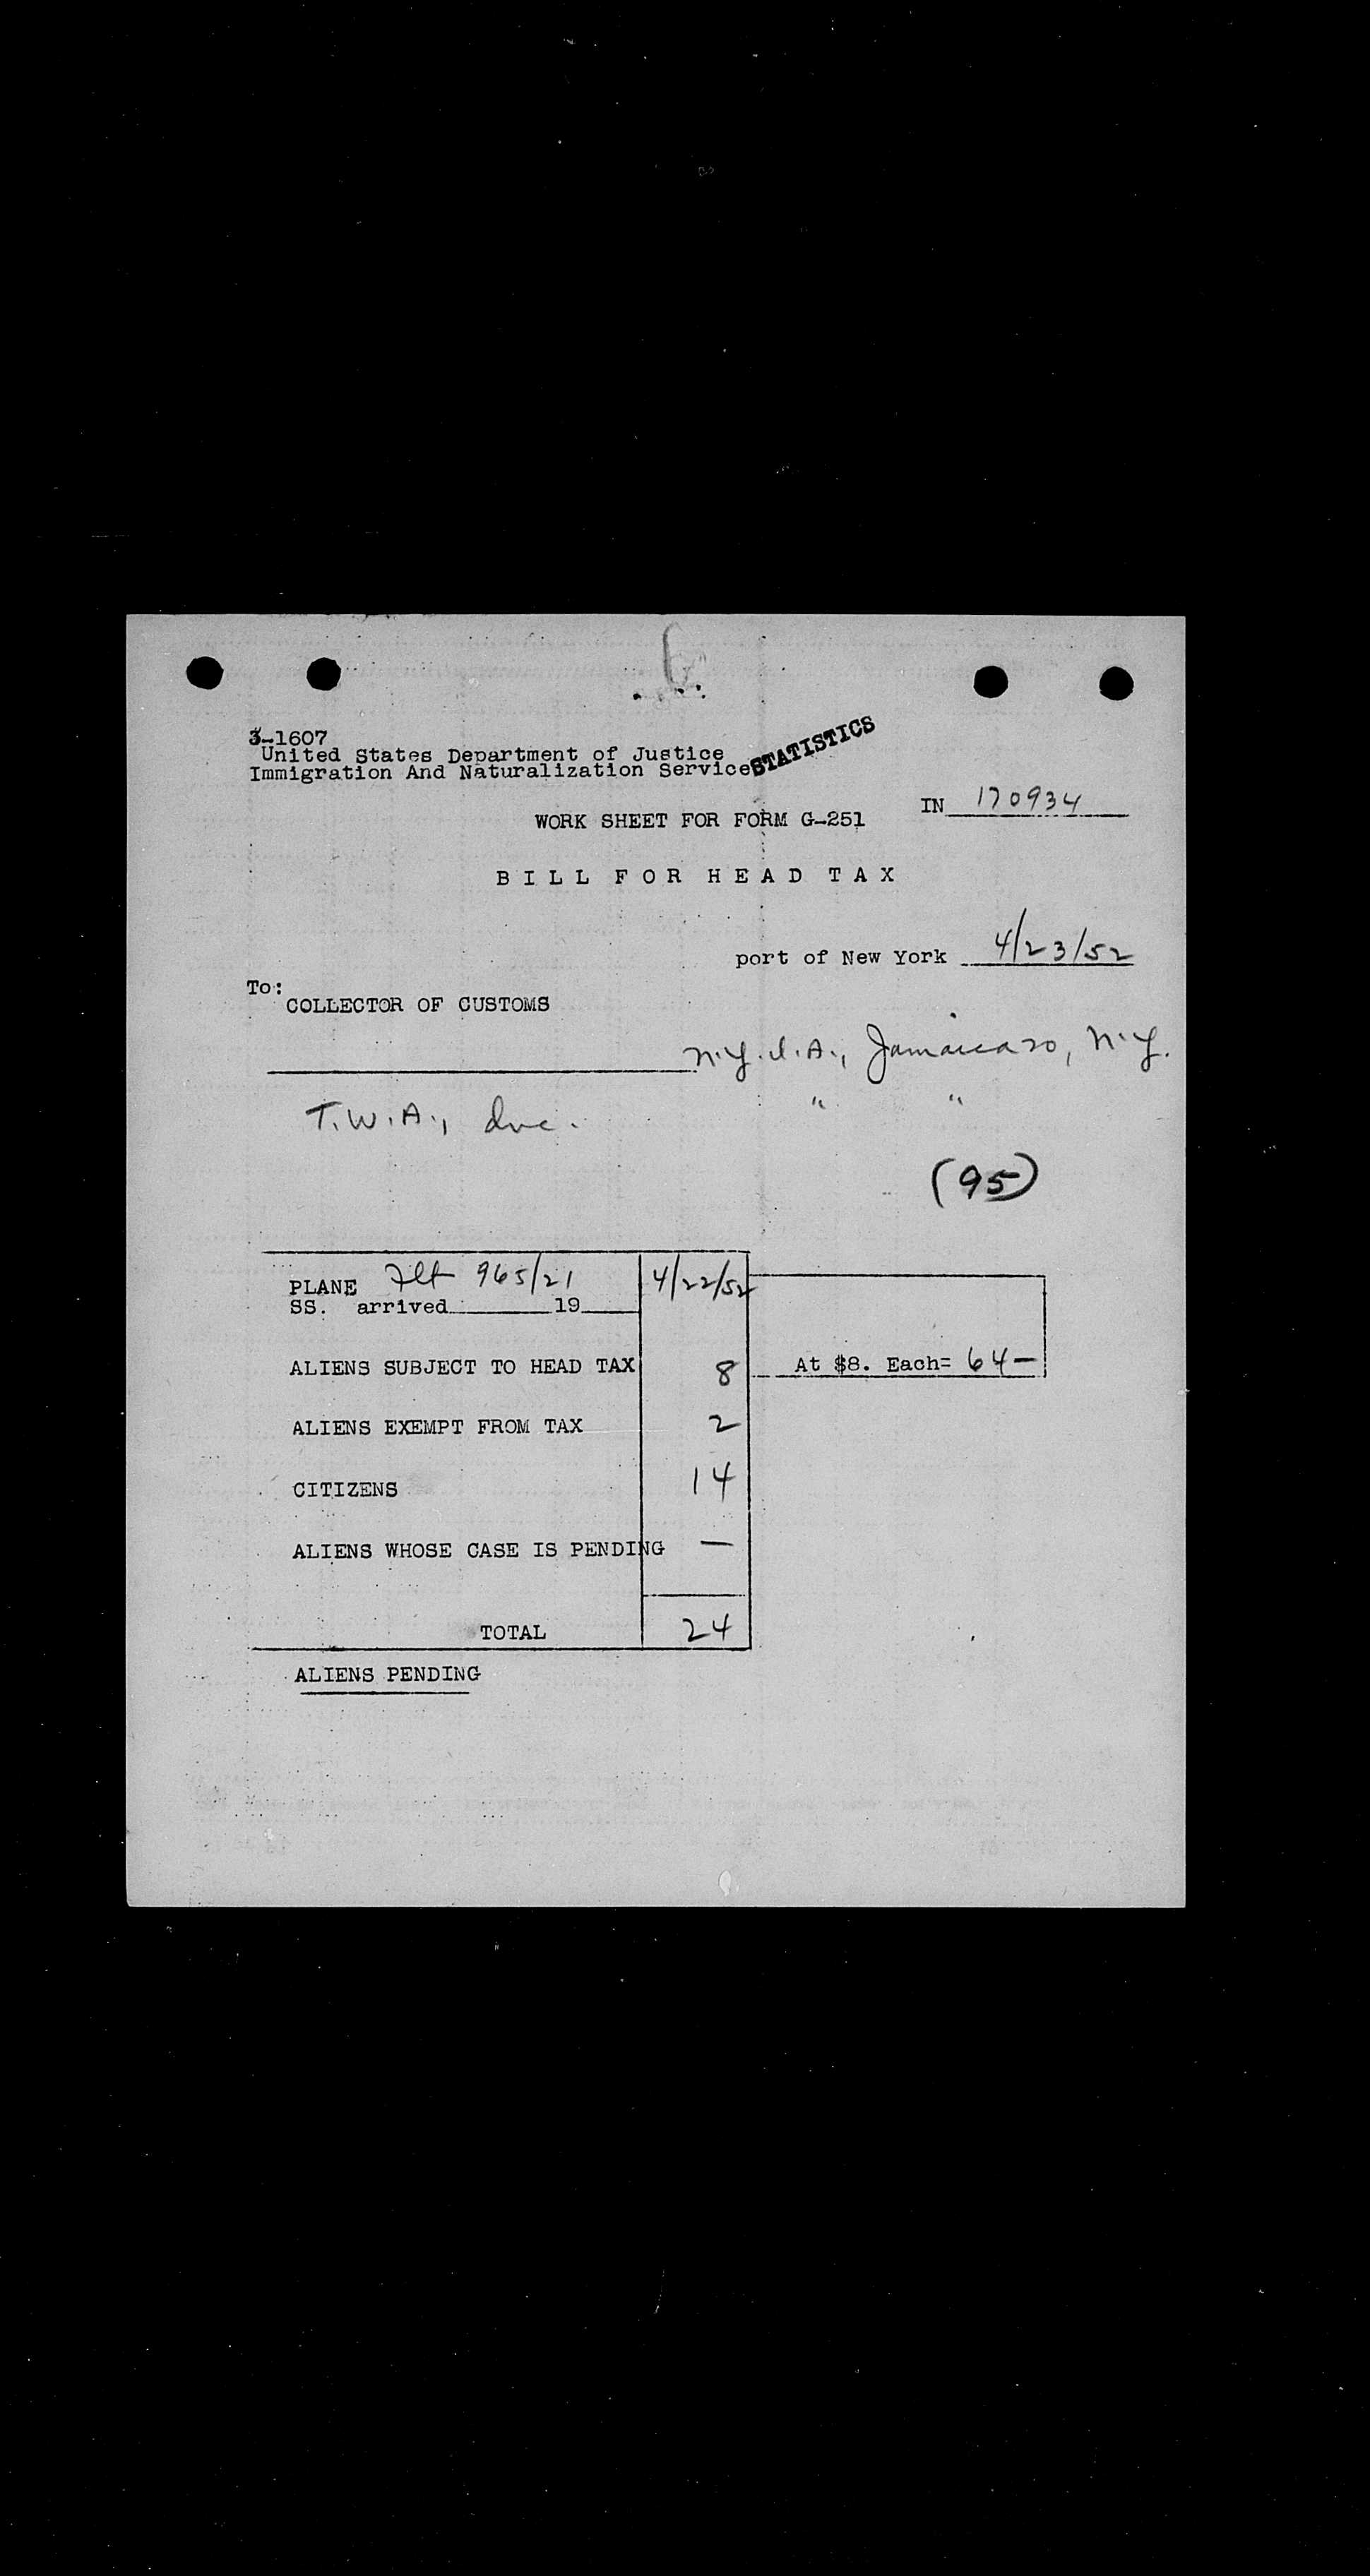 6
3-1607
United States Department of Justice
Immigration And Naturalization Service STATISTICS
IN 170934
WORK SHEET FOR FORM G-251
BILL FOR HEAD TAX
port of New York 4/23/52
To:
COLLECTOR OF CUSTOMS
N.Y.I.A., Jamaica 30, N.Y.
T.W.A., Inc. " "
(95)
PLANE Flt 965/21 4/22/52
SS. arrived 19
ALIENS SUBJECT TO HEAD TAX 8 At $8. Each= 64—
ALIENS EXEMPT FROM TAX 2
CITIZENS 14
ALIENS WHOSE CASE IS PENDING —
TOTAL 24
ALIENS PENDING